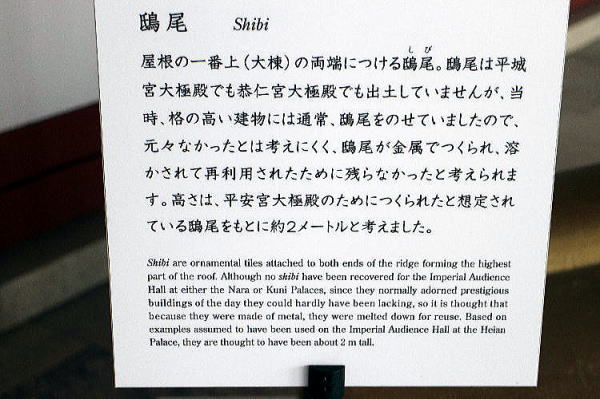 鴟尾 Shibi
屋根の一番上（大棟）の両端につける鴟尾。鴟尾は平城
宮大極殿でも恭仁宮大極殿でも出土していませんが、当
時、格の高い建物には通常、鴟尾をのせていましたので、
元々なかったとは考えにくく、鴟尾が金属でつくられ、溶
かされて再利用されたために残らなかったと考えられま
す。高さは、平安宮大極殿のためにつくられたと想定され
ている鴟尾をもとに約2メートルと考えました。
Shibi are ornamental tiles attached to both ends of the ridge forming the highest
part of the roof. Although no shibi have been recovered for the Imperial Audience
Hall at either the Nara or Kuni Palaces, since they normally adorned prestigious
buildings of the day they could hardly have been lacking, so it is thought that
because they were made of metal, they were melted down for reuse. Based on
examples assumed to have been used on the Imperial Audience Hall at the Heian
Palace, they are thought to have been about 2 m tall.